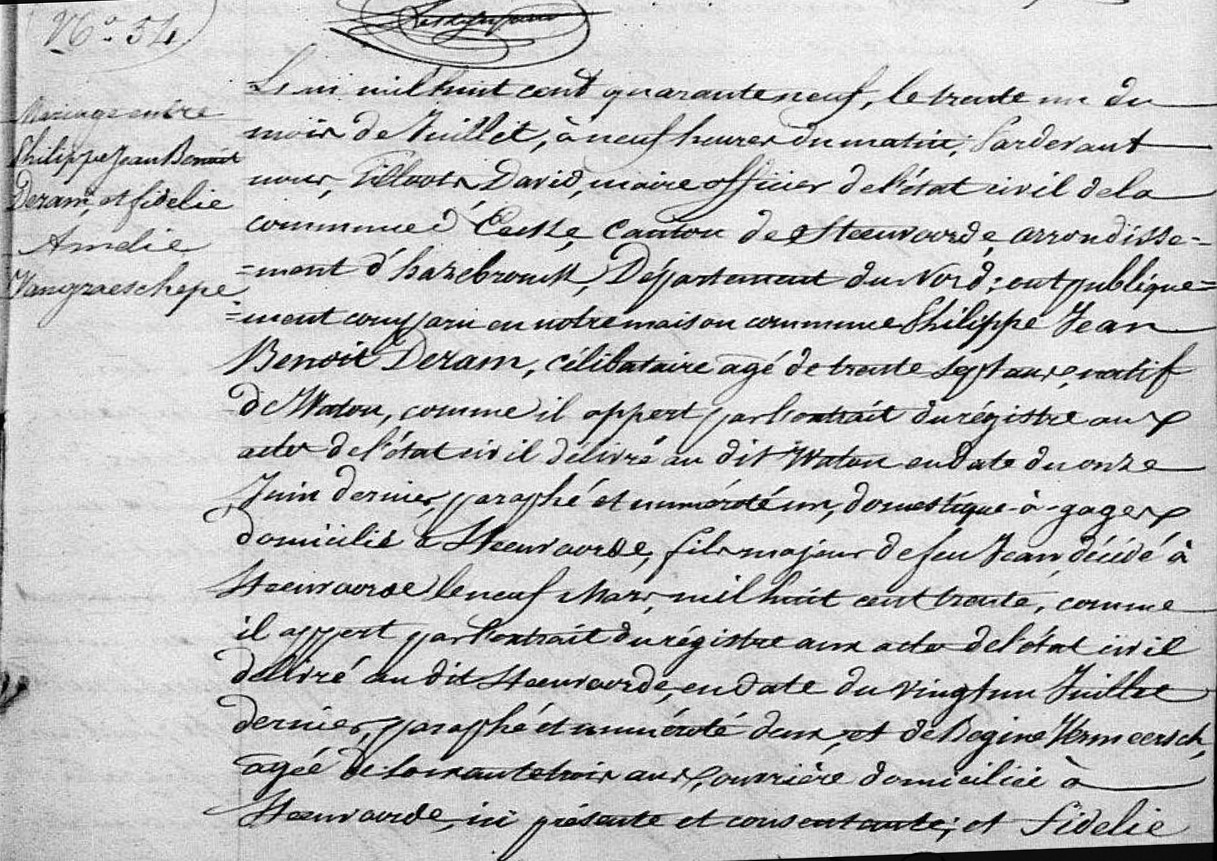 N° 34
Mariage entre
Philippe Jean Benoit
Deram, et fidelie
Amelie
Vangraeschepe
L'an mil huit cent quarante neuf, le trente un du
mois de Juillet, à neuf heures du matin, Pardevant
nous, David, maire officier de l'état civil de la
commune d'Eecke, Canton de Steenvoorde, arrondisse=
=ment d'hazebrouck, Département du Nord; ont publique=
=ment comparu en notre maison commune Philippe Jean
Benoit Deram, célibataire agé de trente sept ans, natif
de Watou, comme il appert par l'extrait du régistre aux
actes de l'état civil délivré au dit Watou en date du onze
Juin dernier, paraphé et numéroté un, domestique-à-gages
domicilié à Steenvoorde, fils majeur de feu Jean, décédé à
Steenvoorde le neuf Mars, mil huit cent trente, comme
il appert par l'extrait du régistre aux actes de l'état civil
délivré au dit Steenvoorde, en date du vingt un Juillet
dernier, paraphé et numéroté deux, et de Regine Vermeersch,
agée de soixante trois ans, ouvrière domiciliée à
Steenvoorde, ici présente et consentante; et fidelie